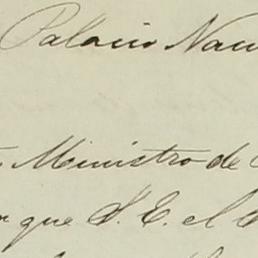 Palacio Nac
Ministro de
que S. E. el